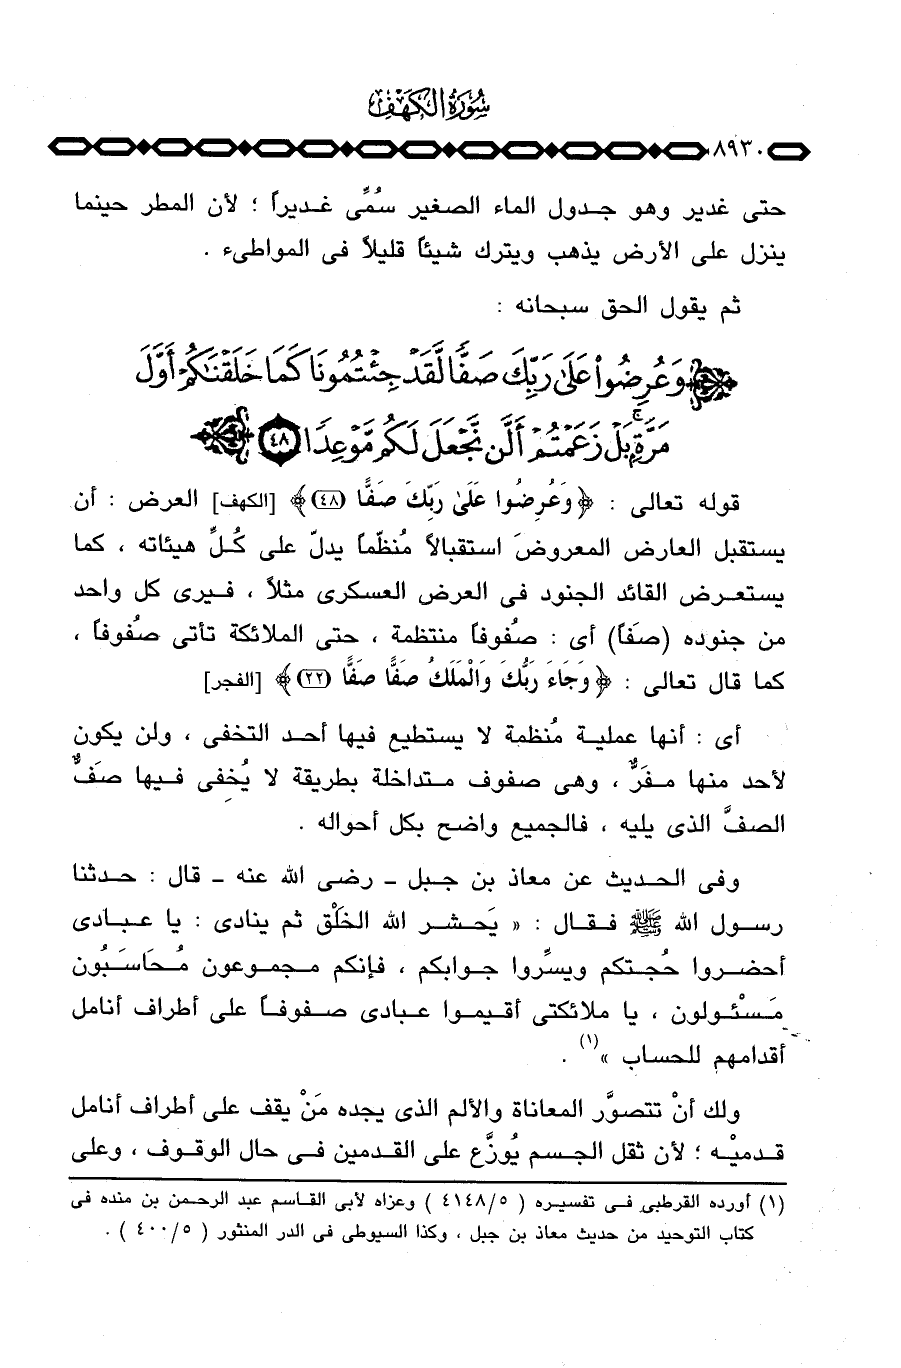 سُورَةُ الكَهْفِ
٨٩٣٠
حتى غدير وهو جدول الماء الصغير سمُِّى غديراً ؛ لأن المطر حينما
ينزل على الأرض يذهب ويترك شيئاً قليلاً فى المواطىء .
ثم يقول الحق سبحانه :
وَعُرِضُوا۟ عَلَىٰ رَبِّكَ صَفًّا لَّقَدْ جِئْتُمُونَا كَمَا خَلَقْنَٰكُمْ أَوَّلَ
مَرَّةٍۭ ۚ بَلْ زَعَمْتُمْ أَلَّن نَّجْعَلَ لَكُم مَّوْعِدًا ٤٨
قوله تعالى : ﴿ وَعُرِضُوا عَلَىٰ رَبِّكَ صَفًّا (٤٨) ﴾ [الكهف] العرض : أن
يستقبل العارض المعروضَ استقبالاً مُنظّماً يدلّ على كُلِّ هيئاته ، كما
يستعرض القائد الجنود فى العرض العسكرى مثلاً ، فيرى كل واحد
من جنوده (صفَاً) أى : صُفوفاً منتظمة ، حتى الملائكة تأتى صُفوفاً ،
كما قال تعالى : ﴿ وَجَاءَ رَبُّكَ وَالْمَلَكُ صَفًّا صَفًّا (٢٢) ﴾ [الفجر]
أى : أنها عملية مُنظمة لا يستطيع فيها أحد التخفى ، ولن يكون
لأحد منها مفَرٌّ ، وهى صفوف متداخلة بطريقة لا يُخفى فيها صَفٌّ
الصفَّ الذى يليه ، فالجميع واضح بكل أحواله .
وفى الحديث عن معاذ بن جبل - رضى الله عنه - قال : حدثنا
رسول الله ﷺ فقال : « يَحشر الله الخَلْق ثم ينادى : يا عبادى
أحضروا حُجتكم ويسِّروا جوابكم ، فإنكم مجموعون مُحَاسَبُون
مَسْئولون ، يا ملائكتى أقيموا عبادى صفوفاً على أطراف أنامل
أقدامهم للحساب »(١) .
ولك أنْ تتصوَّر المعاناة والألم الذى يجده مَنْ يقف على أطراف أنامل
قدميْه ؛ لأن ثقل الجسم يُوزَّع على القدمين فى حال الوقوف ، وعلى
(١) أورده القرطبى فى تفسيره ( ٤١٤٨/٥ ) وعزاه لأبى القاسم عبد الرحمن بن منده فى
كتاب التوحيد من حديث معاذ بن جبل ، وكذا السيوطى فى الدر المنثور ( ٤٠٠/٥ ) .